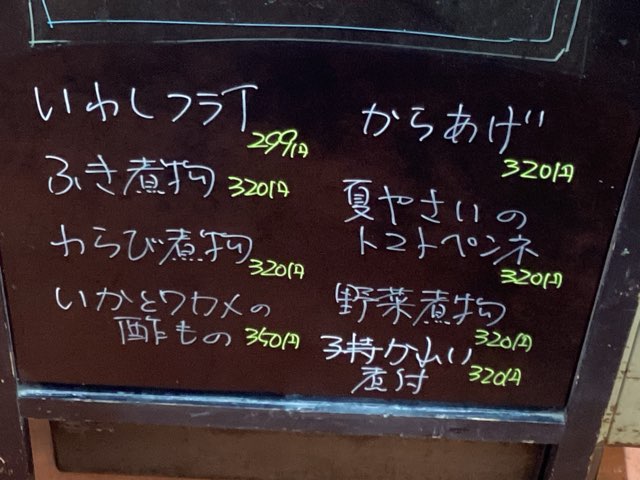 いわしフライ
299円
ふき煮物 320円
わらび煮物
320円
いかとワカメの
酢もの 350円
からあげ
320円
夏やさいの
トマトペンネ
320円
野菜煮物
320円
子持カレイ
煮付 320円